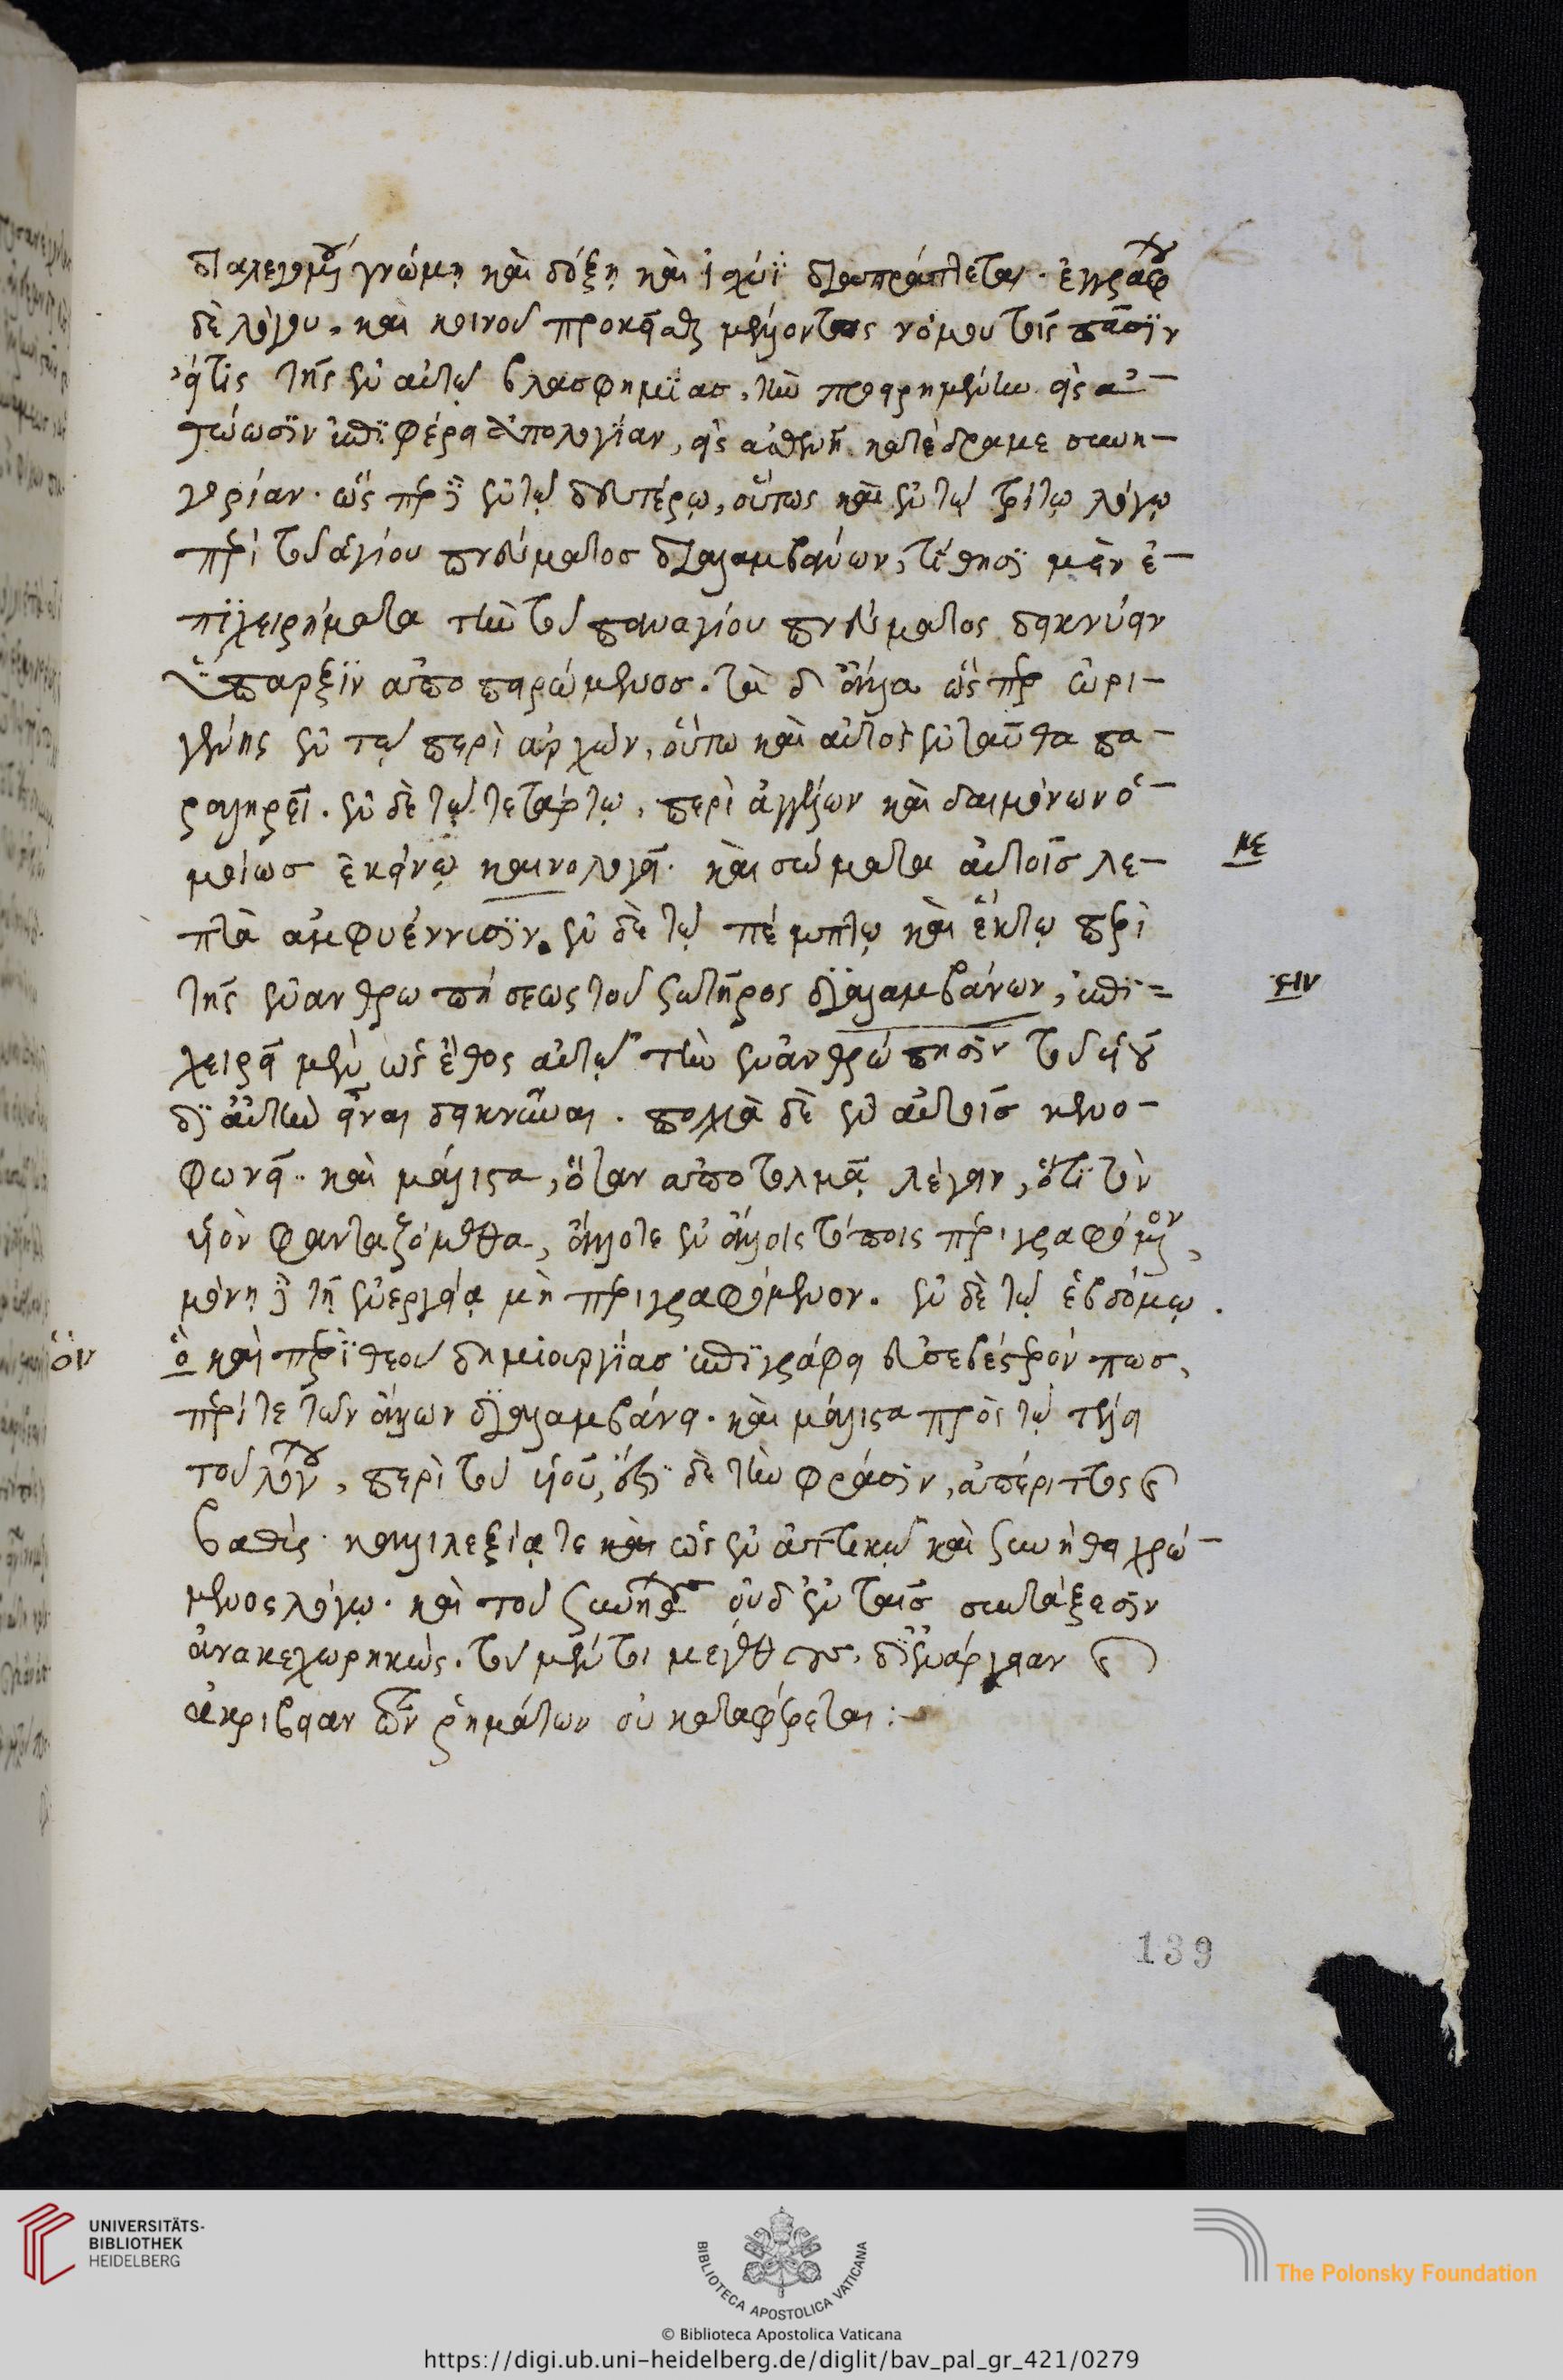 διαλεγομένου γνώμῃ καὶ δόξῃ καὶ ἰσχύϊ διαπράττεται. ἐγγράφου
δὲ λόγου, καὶ κοινοῦ προκεῖσθαι μέλλοντος νόμου τοῖς πᾶσϊν
εἴ τις τῆς ἐν αὐτῷ βλασφημίας, τὴν προειρημένην εἰς α-
θώωσϊν ἐπϊφέρει ἀπολογίαν, εἰς ἀσθενῆ κατέδραμε συνη-
γορίαν. ὥσπερ δὲ ἐν τῷ δευτέρῳ, οὕτως καὶ ἐν τῷ τρίτῳ λόγῳ
περὶ τοῦ ἁγίου πνεύματος διαλαμβάνων, τίθησϊ μὲν ἐ-
πϊχειρήματα τὴν τοῦ παναγίου πνεύματος δεικνύειν
ὕπαρξϊν ἀποπειρώμενος. τὰ δ' ἄλλα ὥσπερ ὠρι-
γένης ἐν τῷ περὶ ἀρχῶν, οὕτω καὶ αὐτὸς ἐνταῦθα πα-
ραληρεῖ. ἐν δὲ τῷ τετάρτῳ, περὶ ἀγγέλων καὶ δαιμόνων ὁ-
μοίως ἐκείνῳ καινολογεῖ. καὶ σώματα αὐτοῖς λε-
κε
πτὰ ἀμφυέννυσϊν. ἐν δὲ τῷ πέμπτῳ καὶ ἕκτῳ περὶ
τῆς ἐνανθρωπήσεως τοῦ σωτῆρος δϊαλαμβάνων, ἐπϊ-
χειρεῖ μὲν ὡς ἔθος αὐτῷ τὴν ἐνανθρώπησϊν τοῦ υἱοῦ
δι' αὐτὴν εἶναι δεικνῦναι. πολλὰ δὲ ἐν αὐτοῖς κενο-
φωνεῖ. καὶ μάλιστα, ὅταν ἀποτολμᾷ λέγειν, ὅτϊ τὸν
υἱὸν φανταζόμεθα, ἄλλοτε ἐν ἄλλοις τόποις περιγραφόμενον,
μόνῃ δὲ τῇ ἐνεργείᾳ μὴ περιγραφόμενον. ἐν δὲ τῷ ἑβδόμῳ.
ὃν
ὃ καὶ περὶ θεοῦ δημιουργίας ἐπϊγράφει εὐσεβέστερόν πως,
περί τε τῶν ἄλλων δϊαλαμβάνει. καὶ μάλιστα πρὸς τῷ τέλει
τοῦ λόγου, περὶ τοῦ υἱοῦ, ἔστϊ δὲ τὴν φράσϊν, ἀπέριττος καὶ
βαθὺς. καλλιλεξίᾳ τε καὶ ὡς ἐν ἀττικῷ καὶ συνήθει χρώ-
μενος λόγῳ. καὶ τοῦ συνήθους οὐδ' ἐν ταῖς συντάξεσϊν
ἀνακεχωρηκώς. τοῦ μέντοι μεγέθους, δι' ἐνάργειαν καὶ
ἀκρίβειαν τῶν ῥημάτων οὐ καταφέρεται:
139
UNIVERSITÄTS-
BIBLIOTHEK
HEIDELBERG
BIBLIOTECA APOSTOLICA VATICANA
The Polonsky Foundation
© Biblioteca Apostolica Vaticana
https://digi.ub.uni-heidelberg.de/diglit/bav_pal_gr_421/0279